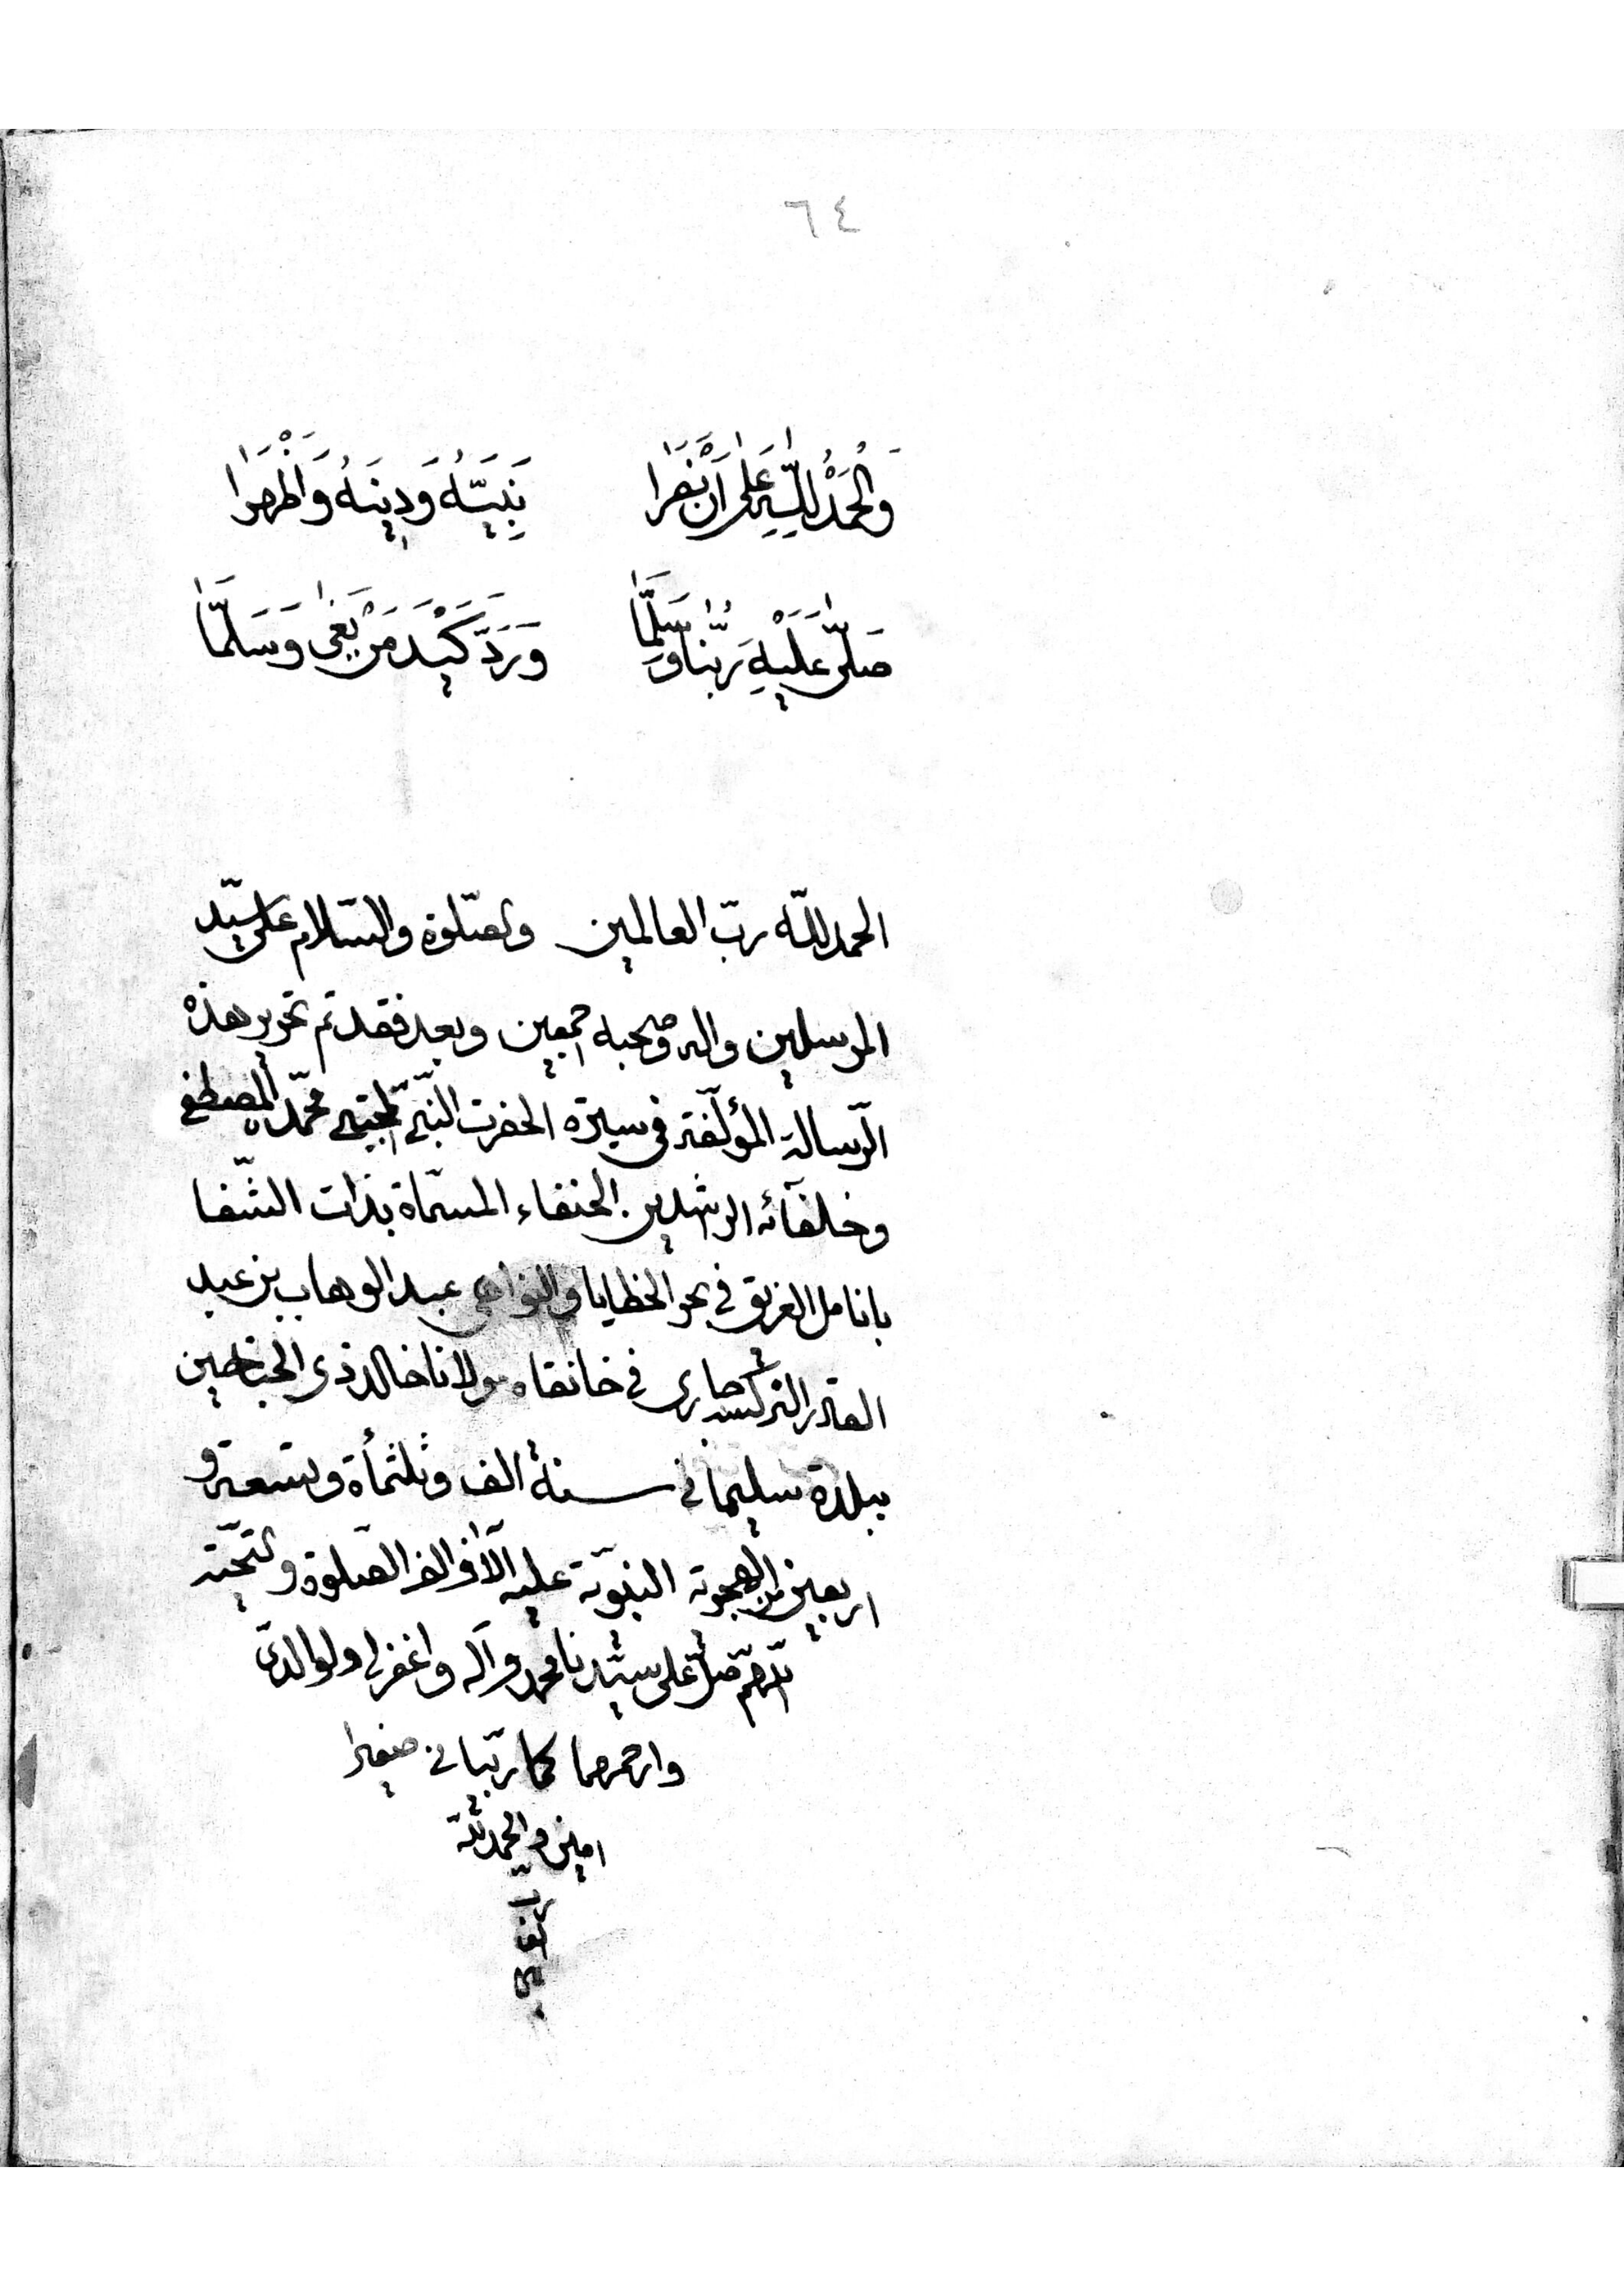 ٦٤
وَالْحَمْدُ لِلّٰهِ عَلٰى اَنْ نَصَرَا نَبِيَّهُ وَدِينَهُ وَاَظْهَرَا
صَلّٰى عَلَيْهِ رَبُّنَا وَسَلَّمَا وَرَدَّ كَيْدَ مَنْ بَغٰى وَسَلَّمَا
الحمد للّه ربّ العالمين والصّلوة والسّلام على سيّد
المرسلين واله وصحبه اجمعين وبعد فقد تم تحرير هذه
الرّسالة المؤلّفة في سيرة الحضرت النّبيّ المجتبى محمّد المصطفى
وخلفآئه الراشدين الحنفاء المسمّاة بذات الشّفا
بانامل الغريق في بحر الخطايا والنواهي عبد الوهاب بن عبد
القادر في خانقاه مولانا خالد ذي الجناحين
ببلدة سليماني سنة الف وثلثمأة وتسعة و
اربعين من الهجرة النبويّة عليه الآف الف الصّلوة والتّحيّة
اللّهمّ صلّ على سيّدنا محمد وآله واغفر لي ولوالديّ
وارحمهما كما ربّياني صغيرا
امين والحمد للّه